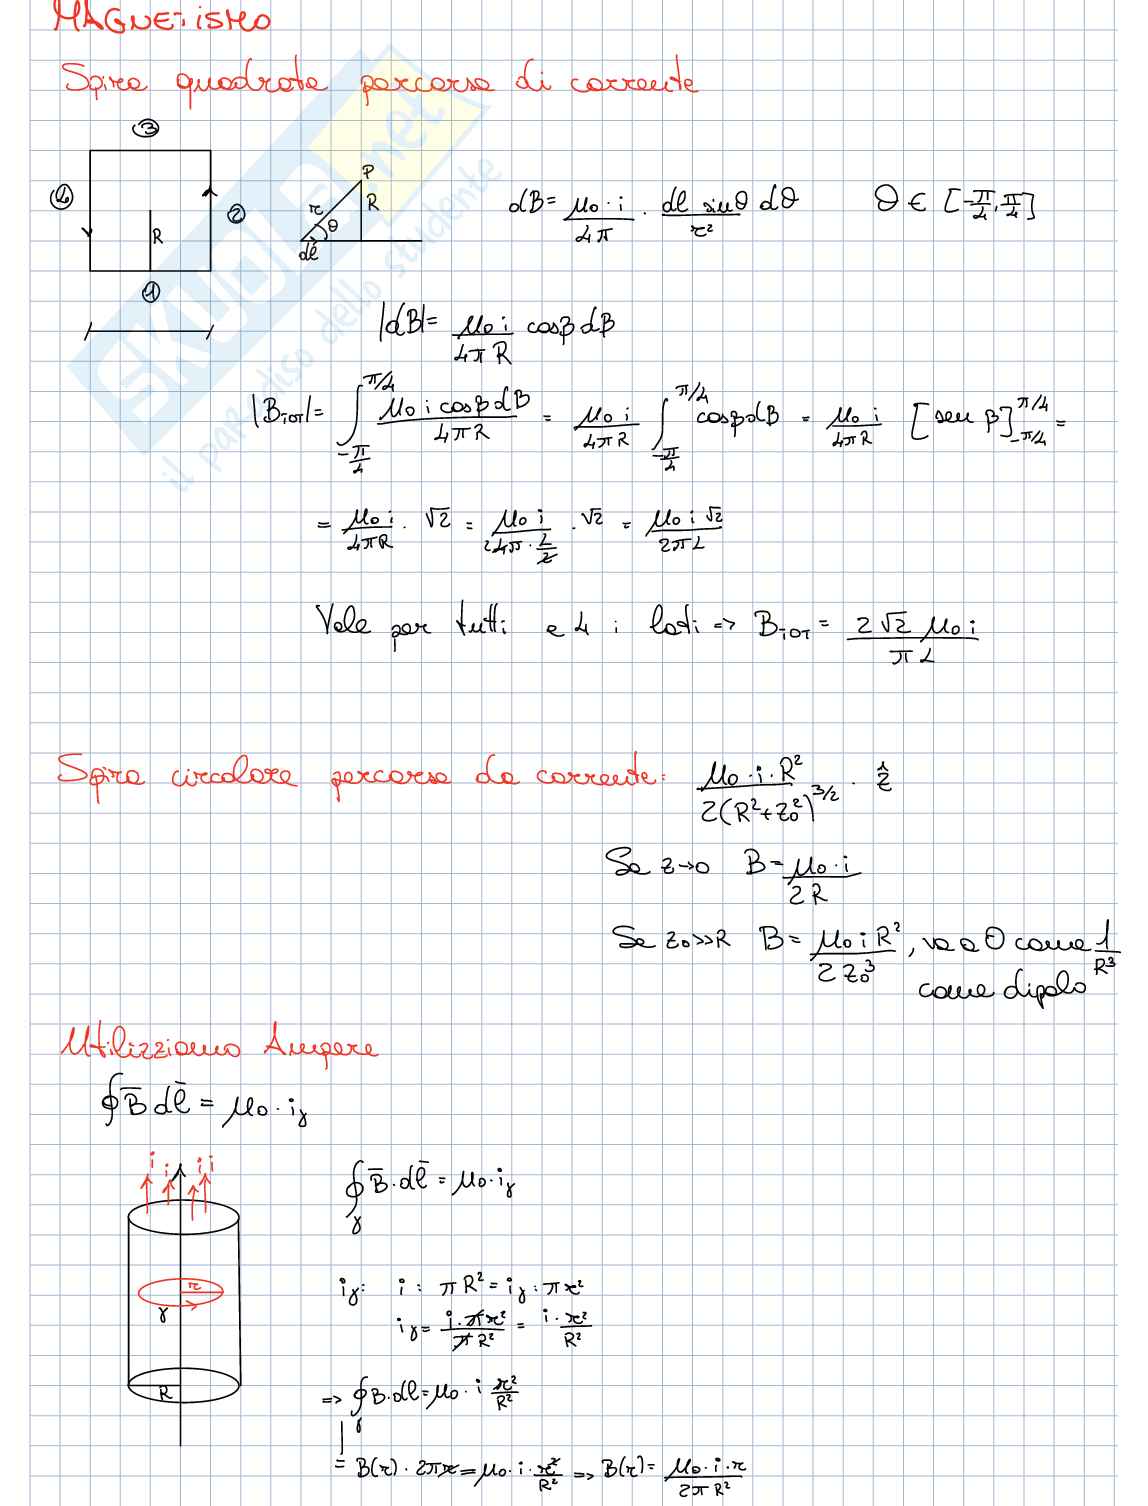 MAGNETISMO
Spira quadrata percorsa di corrente
③
④ ② R
①
P
r R
θ
dl
dB = μ₀·i/4π · dl sinθ/r² dθ   θ ∈ [-π/4, π/4]
|dB| = μ₀ i/4π R cosβ dβ
|B_TOT| = ∫_{-π/4}^{π/4} μ₀ i cosβ dβ/4π R = μ₀ i/4π R ∫_{-π/4}^{π/4} cosβ dβ = μ₀ i/4π R [sen β]_{-π/4}^{π/4} =
= μ₀ i/4π R · √2 = μ₀ i/4π · L/2 · √2 = μ₀ i √2/2π L
Vale per tutti e 4 i lati => B_TOT = 2√2 μ₀ i/π L
Spira circolare percorsa da corrente: μ₀·i·R²/2(R²+z₀²)^{3/2} · ẑ
Se z→0 B = μ₀·i/2R
Se z₀>>R B = μ₀ i R²/2z₀³, va a 0 come 1/R³
come dipolo
Utilizziamo Ampere
∮ B̄ dl̄ = μ₀·i_γ
i i i i
r
γ
R
∮_γ B̄·dl̄ = μ₀·i_γ
i_γ: i : πR² = i_γ : πr²
i_γ = i·πr²/πR² = i·r²/R²
=> ∮_γ B·dl = μ₀·i r²/R²
= B(r)·2πr = μ₀·i·r²/R² => B(r) = μ₀·i·r/2πR²
SKUOLA.net
il paradiso dello studente